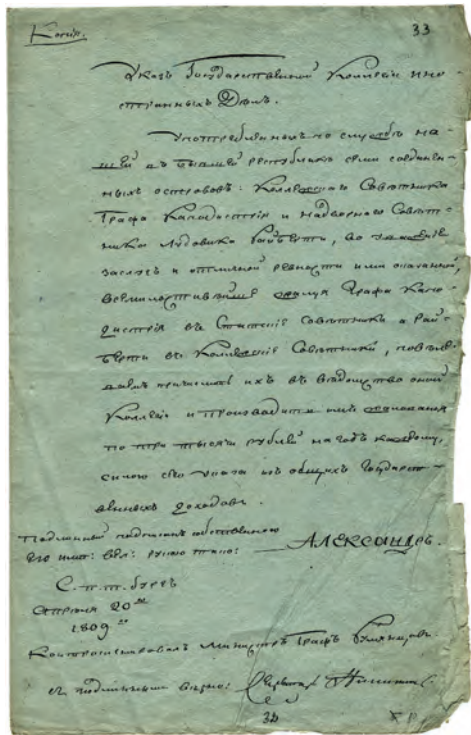 Копія.
33
Указъ Государственной Коллегіи ино-
странныхъ Дѣлъ.
Употребленныхъ по службѣ на-
шей въ бывшей республикѣ семи соединен-
ныхъ острововъ: Коллежскаго Совѣтника
Графа Каподистрія и надворнаго Совѣт-
ника Лудовика, во уваженіе
заслугъ и отличной ревности ими оказанной,
всемилостивѣйше жалуя Графа Капо-
дистрія въ Статскіе Совѣтники а
въ Коллежскіе Совѣтники, повелѣ-
ваемъ причислить ихъ въ вѣдомство оной
Коллегіи и производить имъ жалованья
по три тысячи рублей на годъ каждому,
силою сего указа изъ общихъ Государст-
венныхъ доходовъ.
Подлинный подписанъ собственною
его имп: вел: рукою тако: АЛЕКСАНДРЪ.
С. п. т. бургъ
Апрѣля 20го
1809го
Контрасигнировалъ Министръ Графъ Румянцовъ.
съ подлиннымъ вѣрно:
32